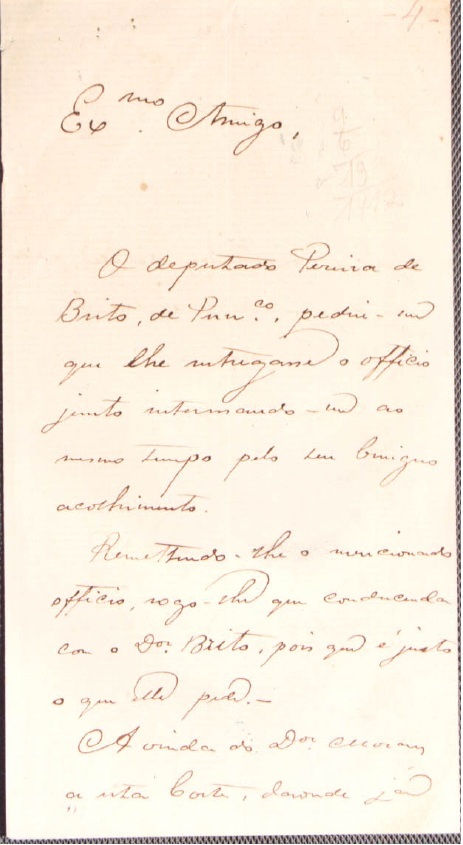 - 4 -
Exmo. Amigo,
O deputado Pereira de
Brito, de Pernco., pediu-me
que lhe entregasse o officio
junto interessando-me ao
mesmo tempo pelo seu benigno
acolhimento.
Remettendo-lhe o mencionado
officio, rogo-lhe que condescenda
com o Dor. Brito, pois que é justo
o que elle pede.-
A vinda do Dor. Moraes
a esta Corte, d'aonde já